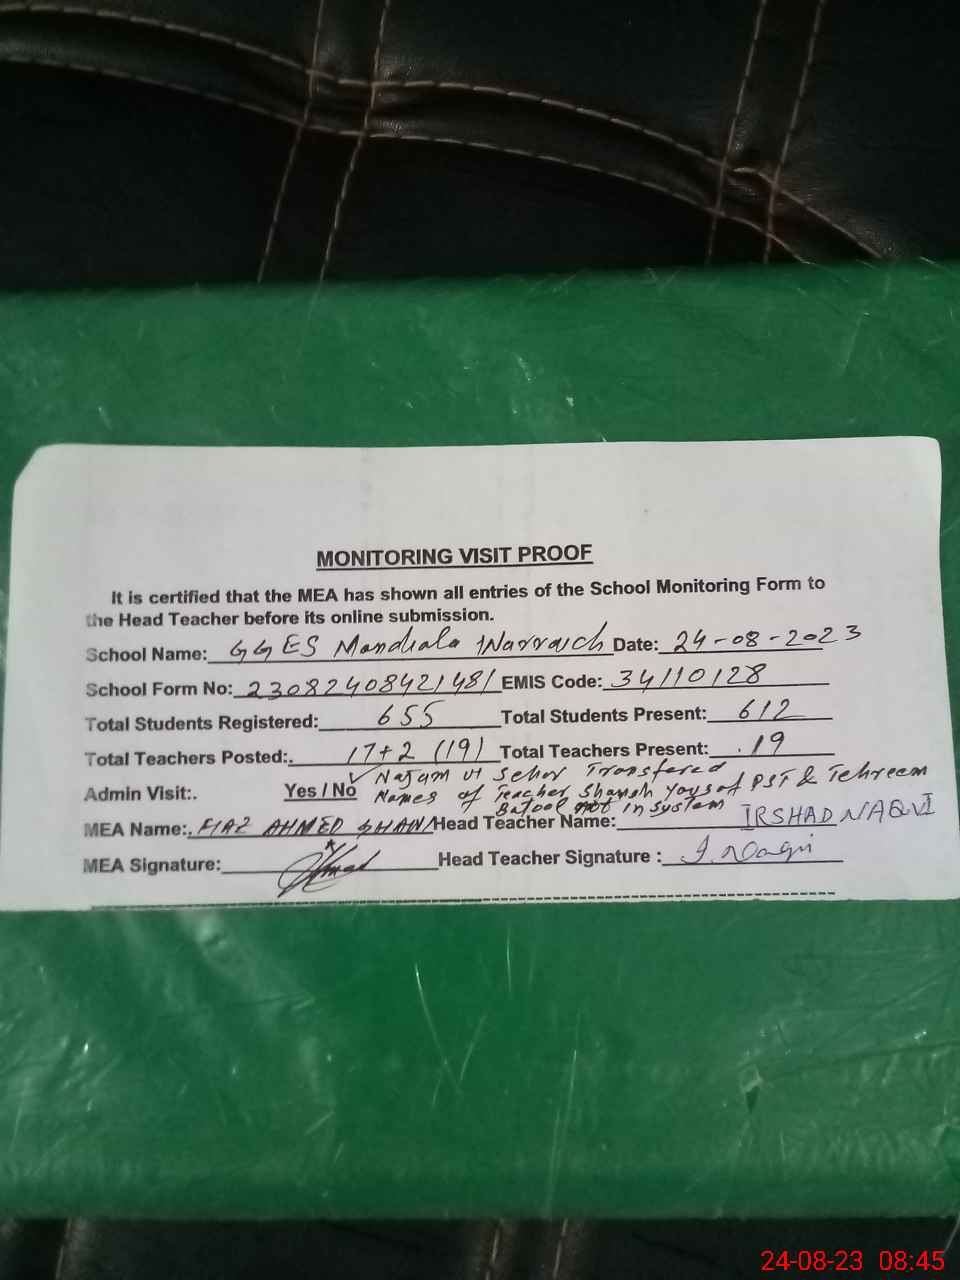 MONITORING VISIT PROOF
It is certified that the MEA has shown all entries of the School Monitoring Form to
the Head Teacher before its online submission.
School Name: GGES Mandiala Warraich Date: 24-08-2023
School Form No: 2308240842148/ EMIS Code: 34110128
Total Students Registered: 655 Total Students Present: 612
Total Teachers Posted:. 17+2 (19) Total Teachers Present: .19
✓ Najam Transfered
Admin Visit:. Yes / No Names of Teacher Yousof PST & Tehreem
Batool not in system
MEA Name:. FIAZ AHMED Head Teacher Name: IRSHAD NAQVI
MEA Signature: Head Teacher Signature : I. Naqvi
24-08-23 08:45